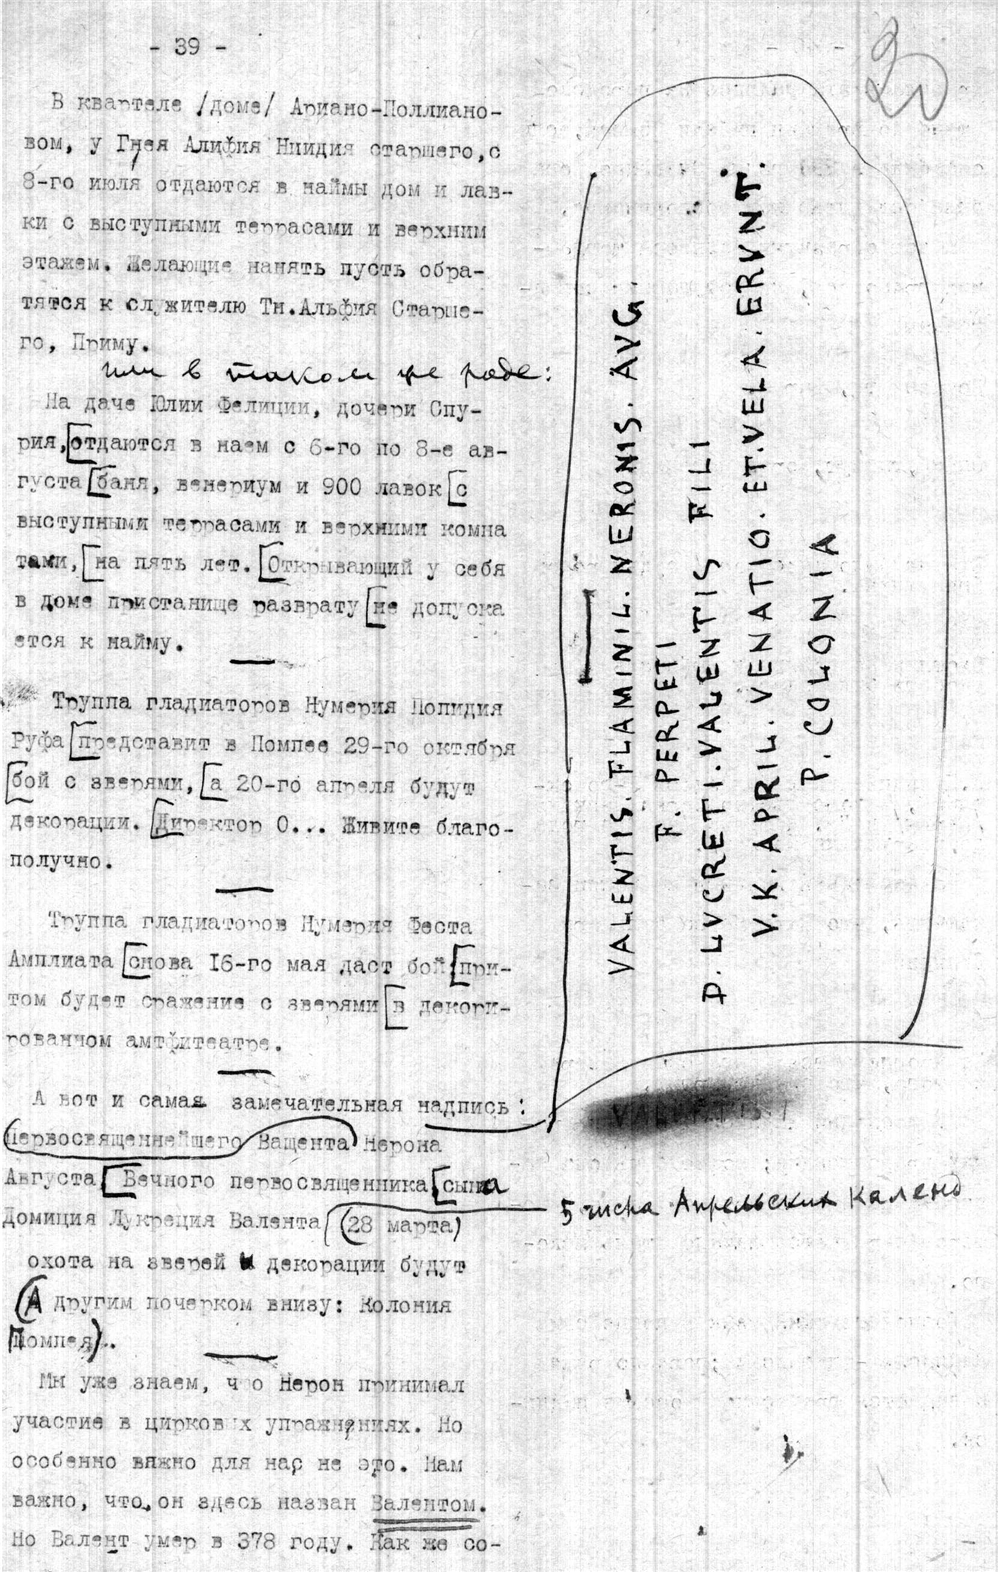 - 39 -
В квартеле /доме/ Ариано-Поллиано-
вом, у Гнея Алифия Нигидия старшего, с
8-го июля отдаются в наймы дом и лав-
ки с выступными террасами и верхним
этажем. Желающие нанять пусть обра-
тятся к служителю Тн.Альфия Старше-
го, Приму.
или в таком же роде:
На даче Юлии Фелиции, дочери Спу-
рия, [отдаются в наем с 6-го по 8-е ав-
густа [баня, венериум и 900 лавок [с
выступными террасами и верхними комна
тами, [на пять лет. [Открывающий у себя
в доме пристанище разврату [не допуска
ется к найму.
Труппа гладиаторов Нумерия Попидия
Руфа [представит в Помпее 29-го октября
[бой с зверями, [а 20-го апреля будут
декорации. [Директор О... Живите благо-
получно.
Труппа гладиаторов Нумерия Феста
Амплиата [снова 16-го мая даст бой [при-
том будет сражение с зверями [в декори-
рованном амтфитеатре.
А вот и самая замечательная надпись:
Первосвященнейшего Ващента Нерона
Августа [Вечного первосвященника [сына
Домиция Лукреция Валента (28 марта)
5 числа Апрельских Календ
охота на зверей и декорации будут
(А другим почерком внизу: Колония
Помпея).
Мы уже знаем, что Нерон принимал
участие в цирковых упражнениях. Но
особенно важно для нас не это. Нам
важно, что он здесь назван Валентом.
Но Валент умер в 378 году. Как же со-
VALENTIS. FLAMINIL. NERONIS. AVG.
F. PERPETI
D. LVCRETI. VALENTIS FILI
V. K. APRIL. VENATIO. ET. VELA. ERVNT.
P. COLONIA